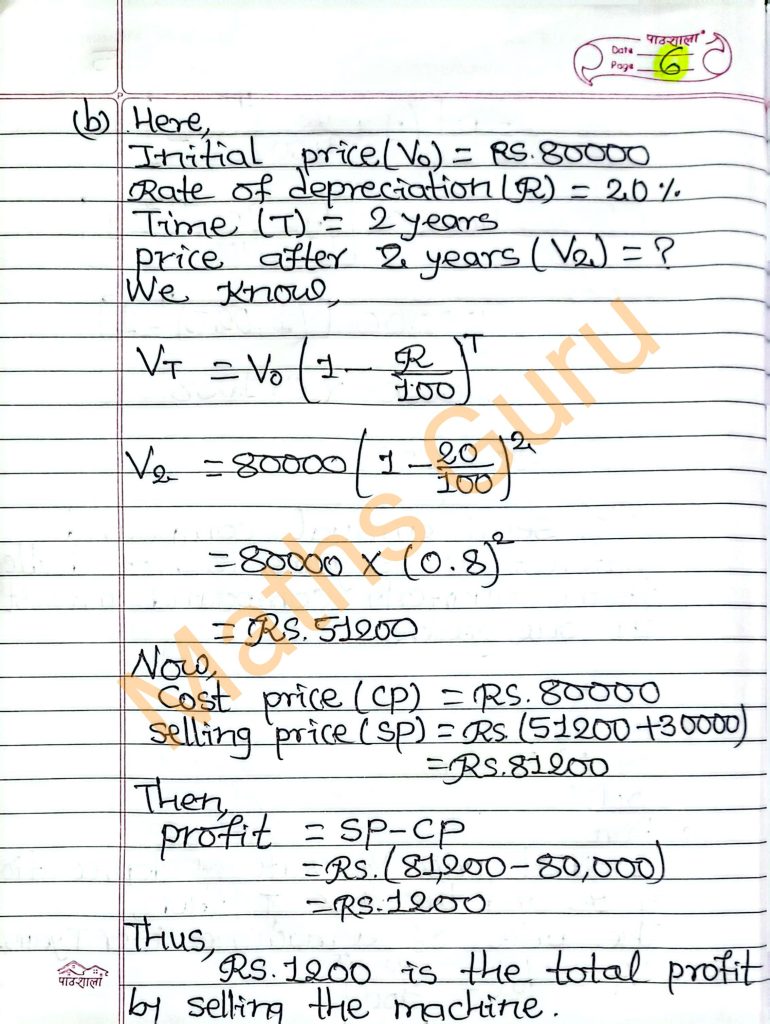 पाठशाला
Date
Page 6
(b) Here,
Initial price (V₀) = RS. 80000
Rate of depreciation (R) = 20%
Time (T) = 2 years
price after 2 years (V₂) = ?
We know,
V_T = V₀ (1 - R/100)^T
V₂ = 80000 (1 - 20/100)²
= 80000 × (0.8)²
= RS. 51200
Now,
Cost price (CP) = RS. 80000
Selling price (SP) = RS. (51200 + 30000)
= RS. 81200
Then,
profit = SP - CP
= RS. (81,200 - 80,000)
= RS. 1200
Thus,
RS. 1200 is the total profit
by selling the machine.
पाठशाला
Maths Guru